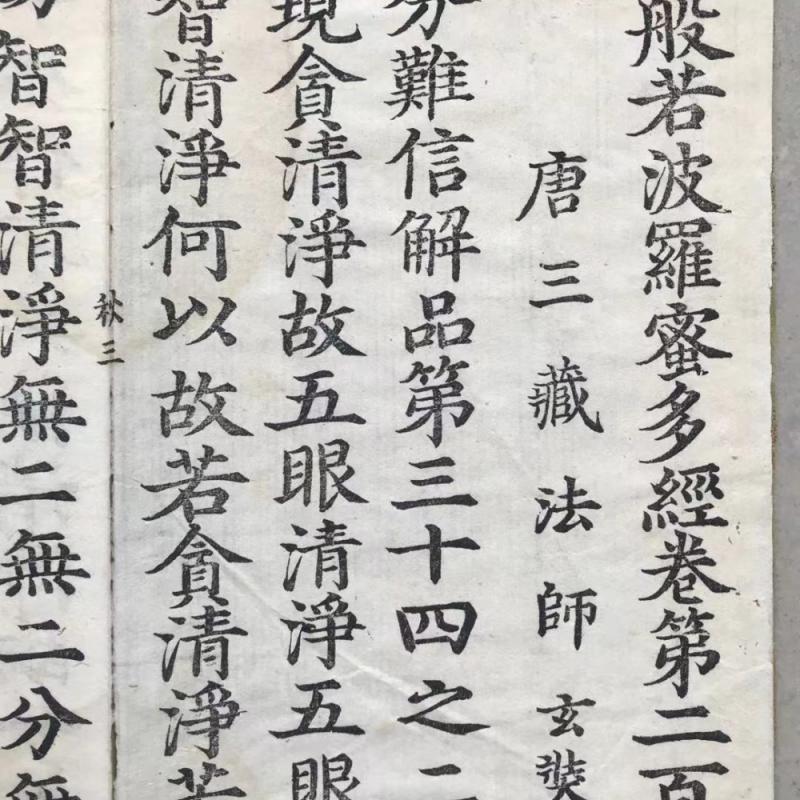 般若波羅蜜多經卷第二百
唐三藏法師玄奘
分難信解品第三十四之二
現貪清淨故五眼清淨五眼
智清淨何以故若貪清淨若
秋三
智智清淨無二無二分無